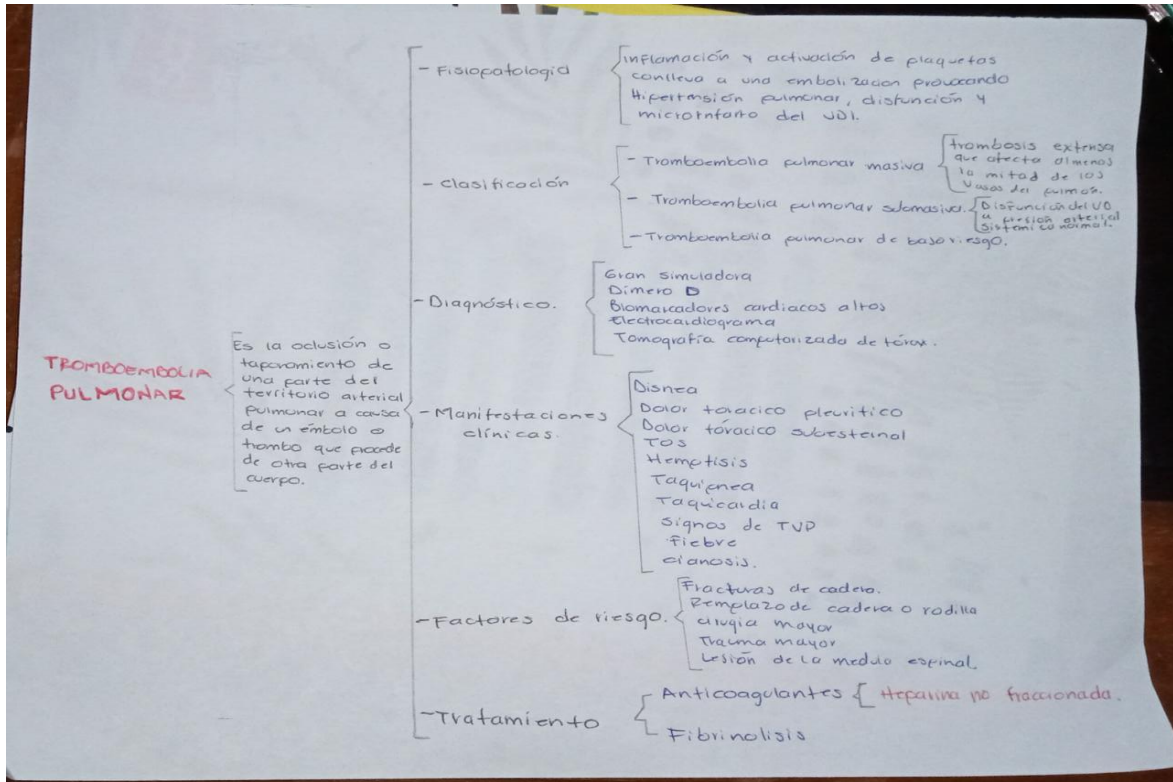 TROMBOEMBOLIA
PULMONAR
Es la oclusión o
taponamiento de
una parte del
territorio arterial
pulmonar a causa
de un émbolo o
trombo que procede
de otra parte del
cuerpo.
- Fisiopatologia
Inflamación y activación de plaquetas
conlleva a una embolizacion provocando
Hipertensión pulmonar, disfunción y
microinfarto del
- Clasificación
- Tromboembolia pulmonar masiva
trombosis extensa
que afecta almenos
la mitad de los
Vasos del pulmon.
- Tromboembolia pulmonar submasiva.
Disfunción del VD
presión arterial
normal.
- Tromboembolia pulmonar de bajo riesgo.
- Diagnóstico.
Gran simuladora
Dimero D
Biomarcadores cardiacos altos
Electrocardiograma
Tomografía computarizada de tórax.
- Manifestaciones
clínicas.
Disnea
Dolor torácico pleuritico
Dolor tóracico subesternal
TOS
Hemptisis
Taquipnea
Taquicardia
signos de TVP
Fiebre
cianosis.
- Factores de riesgo.
Fracturas de cadera.
Remplazo de cadera o rodilla
cirugia mayor
Trauma mayor
Lesión de la medula espinal.
- Tratamiento
Anticoagulantes
Heparina no fraccionada.
Fibrinolisis